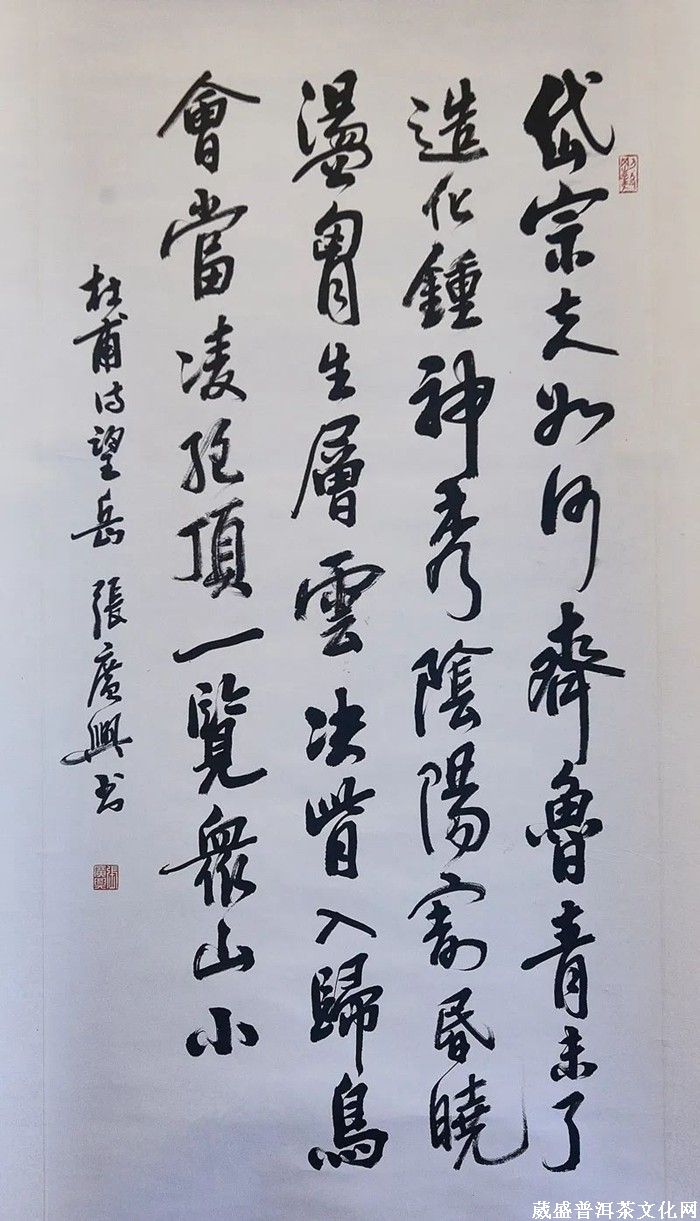 岱宗夫如何齊魯青未了
造化鍾神秀陰陽割昏曉
盪胷生層雲決眥入歸鳥
會當凌絕頂一覽衆山小
杜甫诗望岳 張廣興书
張廣興
葳盛普洱茶文化网